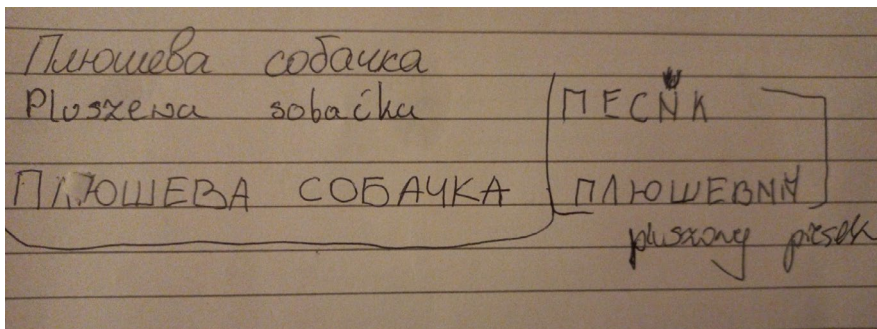 Плюшева собачка
Pluszewa sobaćka ПЕСИК
ПЛЮШЕВА СОБАЧКА ПЛЮШЕВИЙ
pluszowy piesek